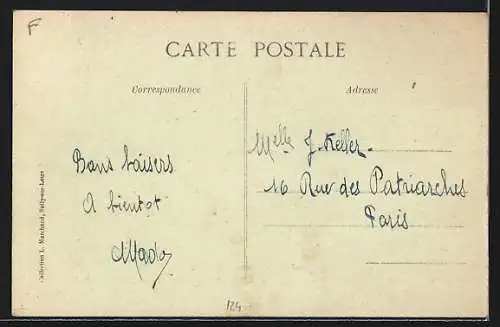 F
CARTE POSTALE
Correspondance
Adresse
Bons baisers
A bientot
Mado
Melle J. Keller
16 Rue des Patriarches
Paris
Collection L. Marchand, Sully-sur-Loire
124